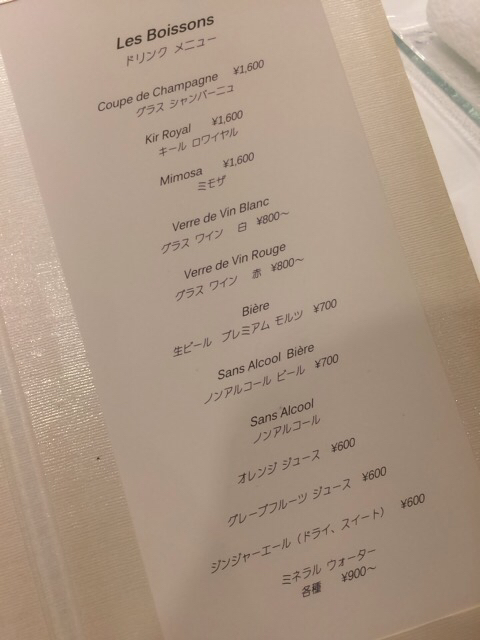 Les Boissons
ドリンク メニュー
Coupe de Champagne ¥1,600
グラス シャンパーニュ
Kir Royal ¥1,600
キール ロワイヤル
Mimosa ¥1,600
ミモザ
Verre de Vin Blanc
グラス ワイン 白 ¥800〜
Verre de Vin Rouge
グラス ワイン 赤 ¥800〜
Bière
生ビール プレミアム モルツ ¥700
Sans Alcool Bière
ノンアルコール ビール ¥700
Sans Alcool
ノンアルコール
オレンジ ジュース ¥600
グレープフルーツ ジュース ¥600
ジンジャーエール（ドライ、スイート） ¥600
ミネラル ウォーター
各種 ¥900〜